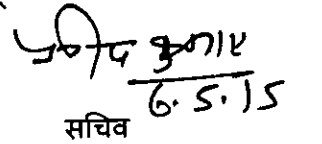 प्रदीप कुमार
6.5.15
सचिव